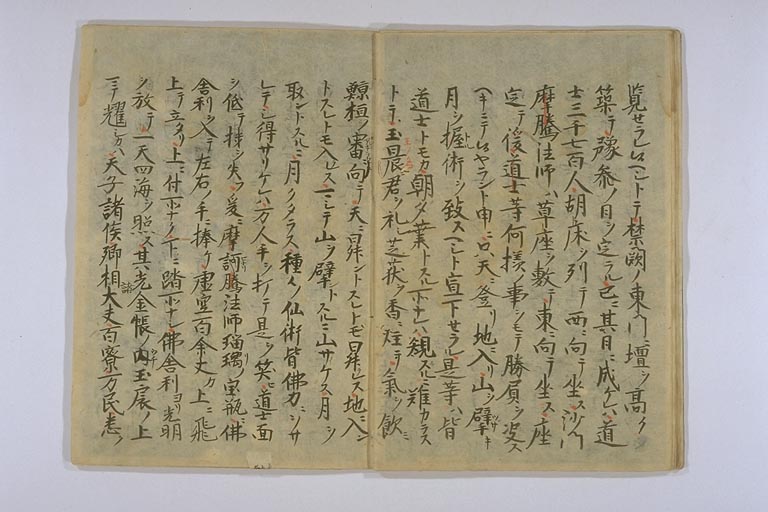 覧セラレ候ヘトテ禁闕ノ東門ニ壇ヲ高ク
築テ豫參ノ日ヲ定ラル已ニ其日ニ成ケレハ道
士三千七百人胡床ヲ列テ西ニ向テ坐ス沙門
摩騰法師ハ草座ヲ敷テ東ニ向テ坐ス座
定テ後道士等何様ノ事ヲモテ勝負ヲ
ヘキニテ候ヤラント申ニ只天ニ登リ地ニ入リ山ヲ擘キ
月ヲ握術ヲ致スヘシト宣下セラル是等ハ皆
道士トモカ朝夕業トスル所ナレハ観スルニ難カラス
トテ玉晨君ヲ礼シ芝荻ヲ香ニ炷テ氣ヲ飲
鯨桓ヲ審向テ天ニ昇ントスレトモ昇レス地ニ入ン
トスレトモ入レスマシテ山ヲ擘ントスルニ山サケス月ヲ
取ントスルニ月クタラス種々ノ仙術皆佛力ニヲサ
レテシ得サリケレハ万人手ヲ打テ是ヲ笑道士面
ヲ低テ様ヲ失フ爰ニ摩訶騰法師瑠璃ノ宝瓶ニ佛
舎利ヲ入テ左右ノ手ニ捧ケ虚空百余丈カ上ニ飛
上テ立タリ上ニ付所ナク下ニ踏所ナシ佛舎利ヨリ光明
ヲ放テ一天四海ヲ照ス其光金帳ノ内玉扆ノ上
ニテ耀シカハ天子諸侯卿相大夫百寮万民悉ク